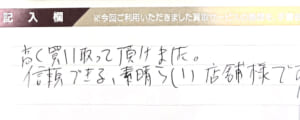 記入欄
※今回ご利用いただきました買取サービスの
高く買い取って頂けました。
信頼できる、素晴らしい店舗様です